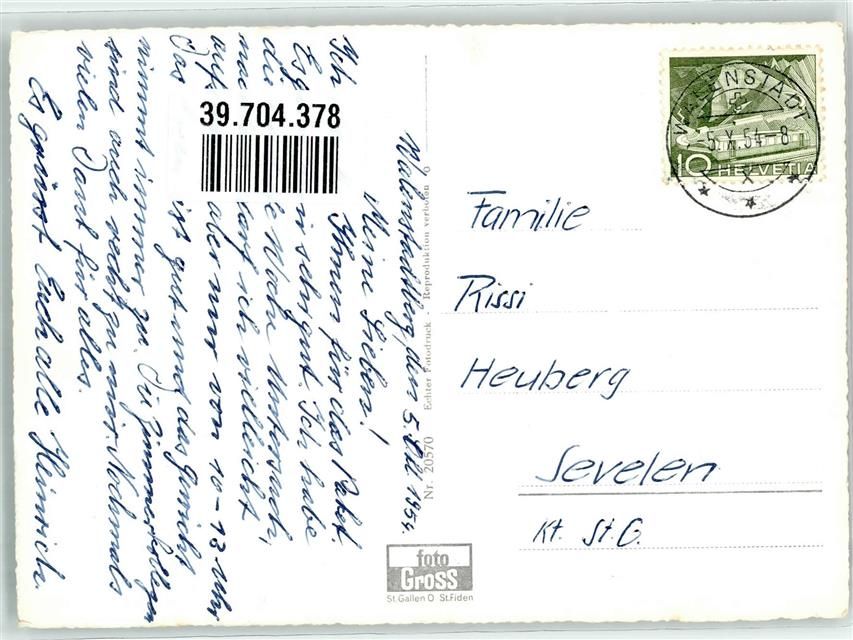 Walenstadtberg, den 5. Okt 1954.
Meine Lieben!
Ich Ihnen für das Paket.
Es sehr gut. Ich habe
die Woche Untersuch,
darf ich vielleicht
auf aber nur von 10-12 Uhr
Das ist gut und das Gewicht
nimmt immer zu. Die Zimmerkollegen
sind auch recht zu mir. Nochmals
vielen Dank für alles.
Es grüsst Euch alle Heinrich.
39.704.378
Nr. 20570 Echter Fotodruck - Reproduktion verboten 6
foto
Gross
St.Gallen O St.Fiden
WALENSTADT
5.X.54-8
10 HELVETIA
Familie
Rissi
Heuberg
Sevelen
Kt. St.G.